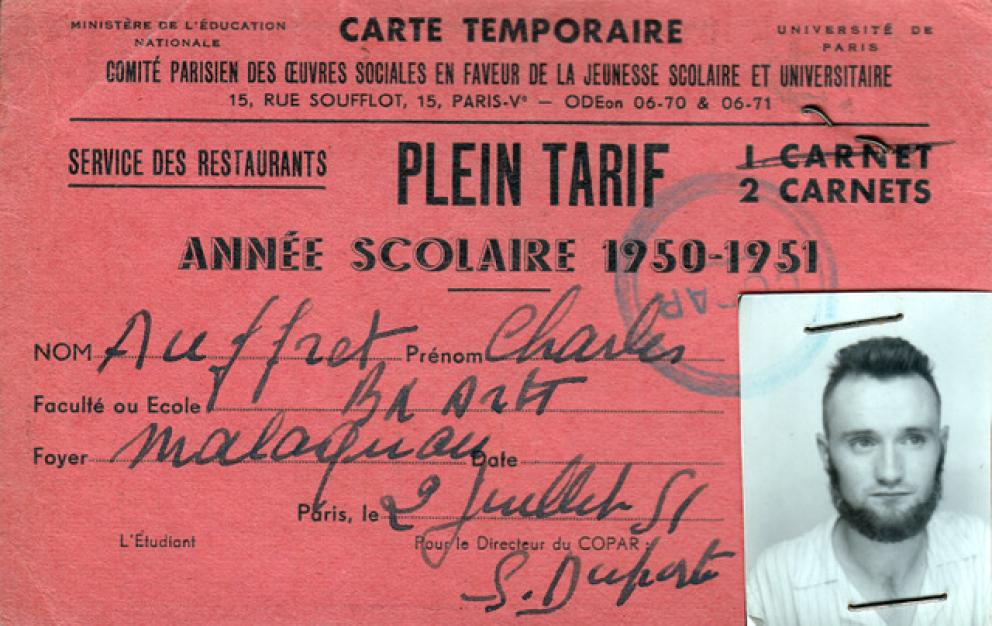 MINISTÈRE DE L'ÉDUCATION NATIONALE
CARTE TEMPORAIRE
UNIVERSITÉ DE PARIS
COMITÉ PARISIEN DES ŒUVRES SOCIALES EN FAVEUR DE LA JEUNESSE SCOLAIRE ET UNIVERSITAIRE
15, RUE SOUFFLOT, 15, PARIS-Vº — ODEon 06-70 & 06-71
SERVICE DES RESTAURANTS
PLEIN TARIF
1 CARNET
2 CARNETS
ANNÉE SCOLAIRE 1950-1951
COPAR
NOM Auffret Prénom Charles
Faculté ou Ecole Bx Arts
Foyer Malaquais Date
Paris, le 2 Juillet 51
L'Étudiant
Pour le Directeur du COPAR :
S. Duport